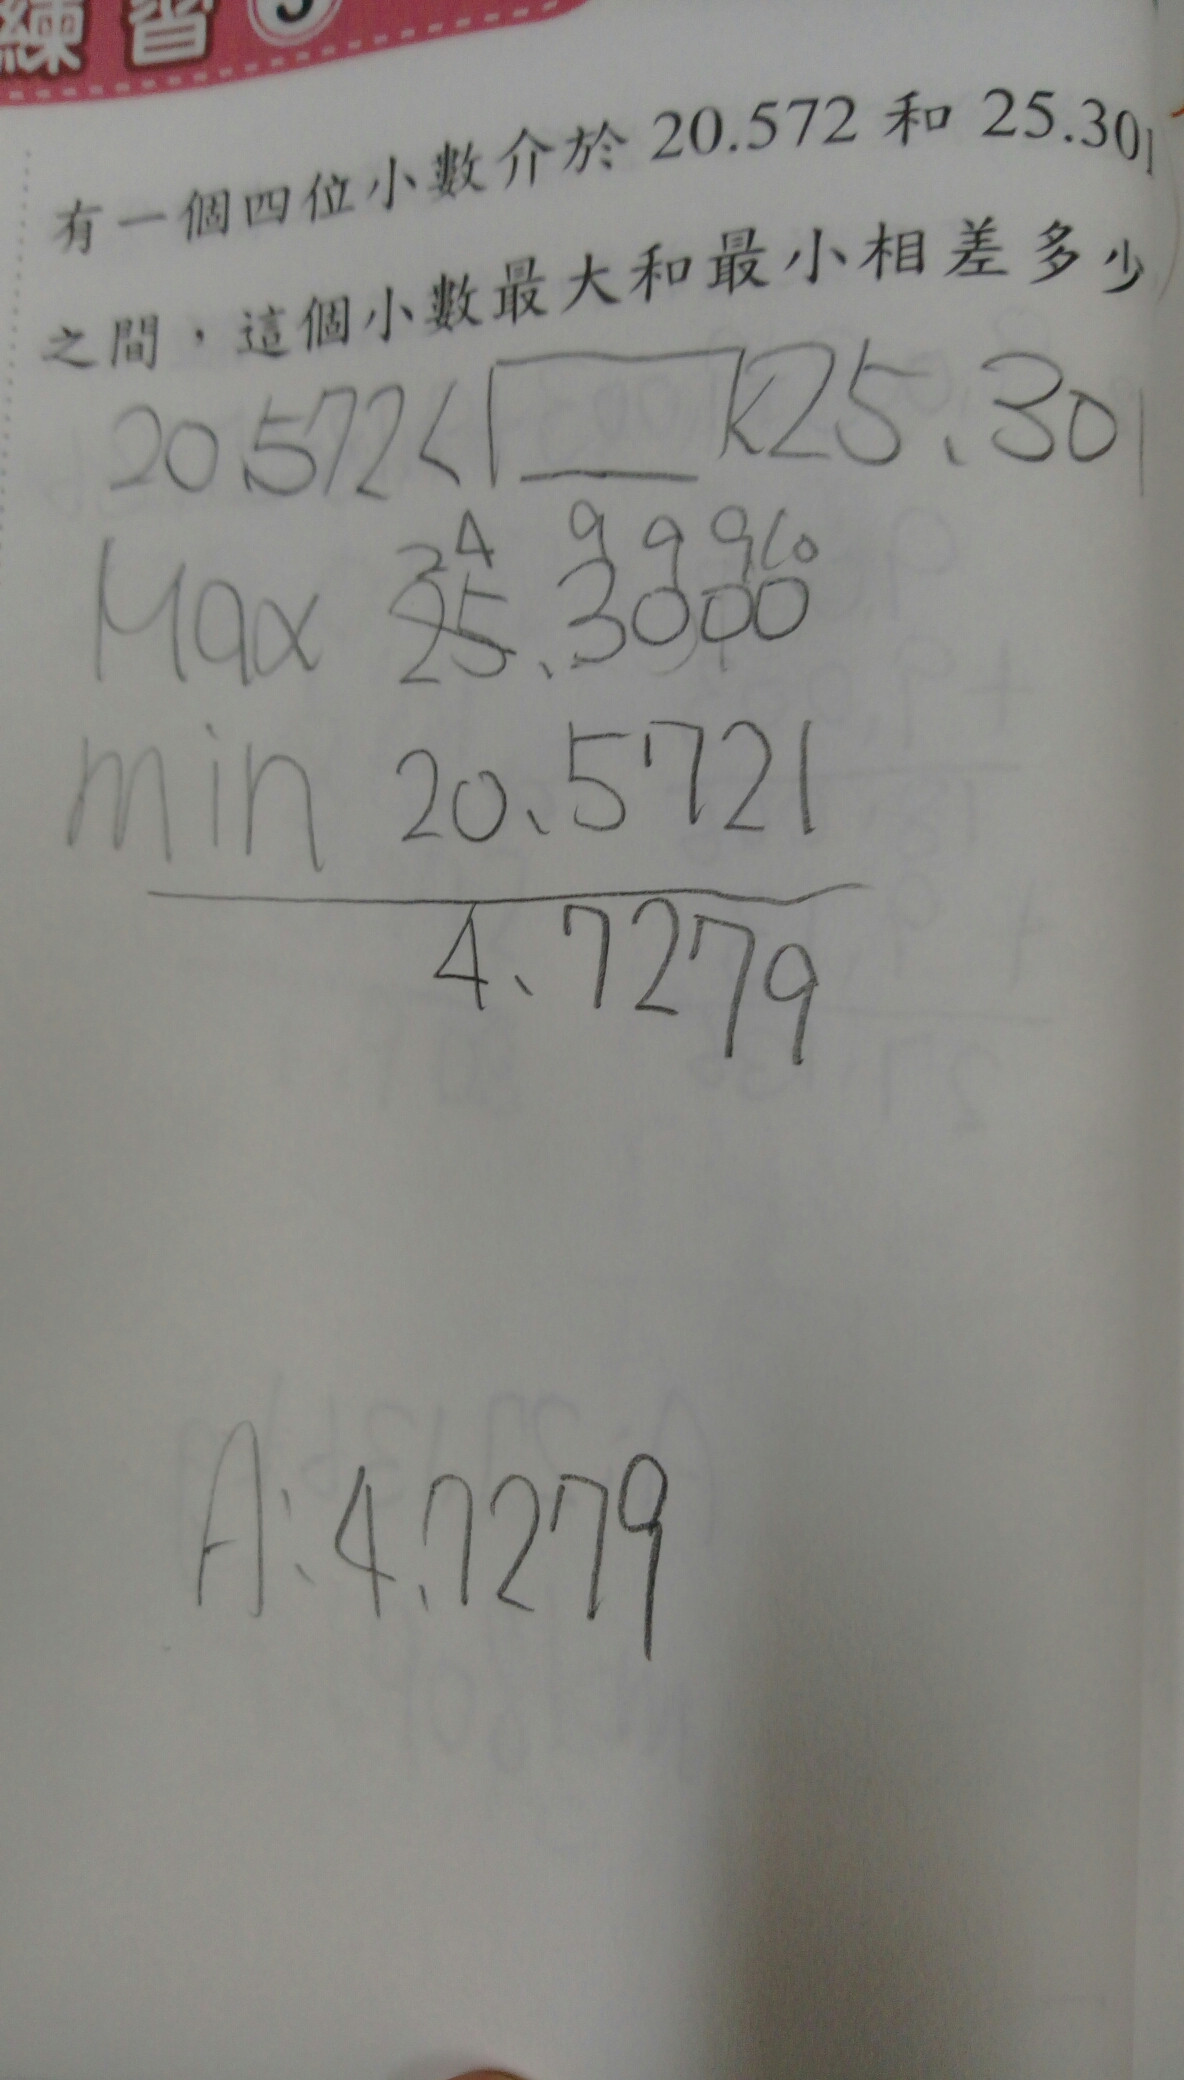 練習5
有一個四位小數介於 20.572 和 25.301
之間，這個小數最大和最小相差多少
20.572<□<25.301
Max 25.3000
24 9 9 9 10
min 20.5721
4.7279
A:4.7279